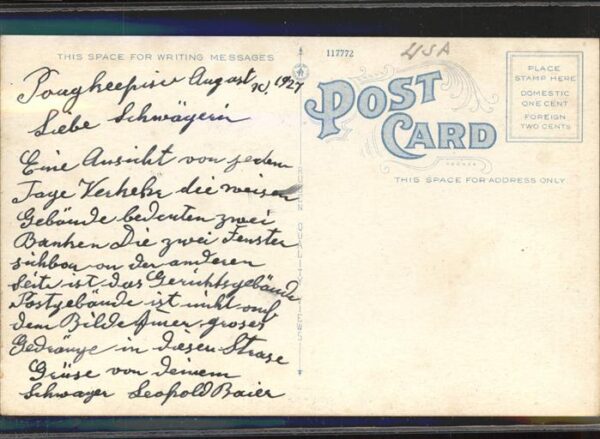 THIS SPACE FOR WRITING MESSAGES
117772
USA
Poughkeepsie August 1927
Liebe Schwägerin
Eine Ansicht von jedem
Tage Verkehr die weisen
Gebäude bedeuten zwei
Banken Die zwei Fenster
sichbar on der anderen
Seite ist das Gerichtsgebäude
Postgebäude ist nicht auf
dem Bilde Imer groses
Gedränge in diesen Strase
Grüse von deinem
Schwager Leopold Baier
POST
CARD
PLACE
STAMP HERE
DOMESTIC
ONE CENT
FOREIGN
TWO CENTS
THIS SPACE FOR ADDRESS ONLY
QUALITY VIEWS